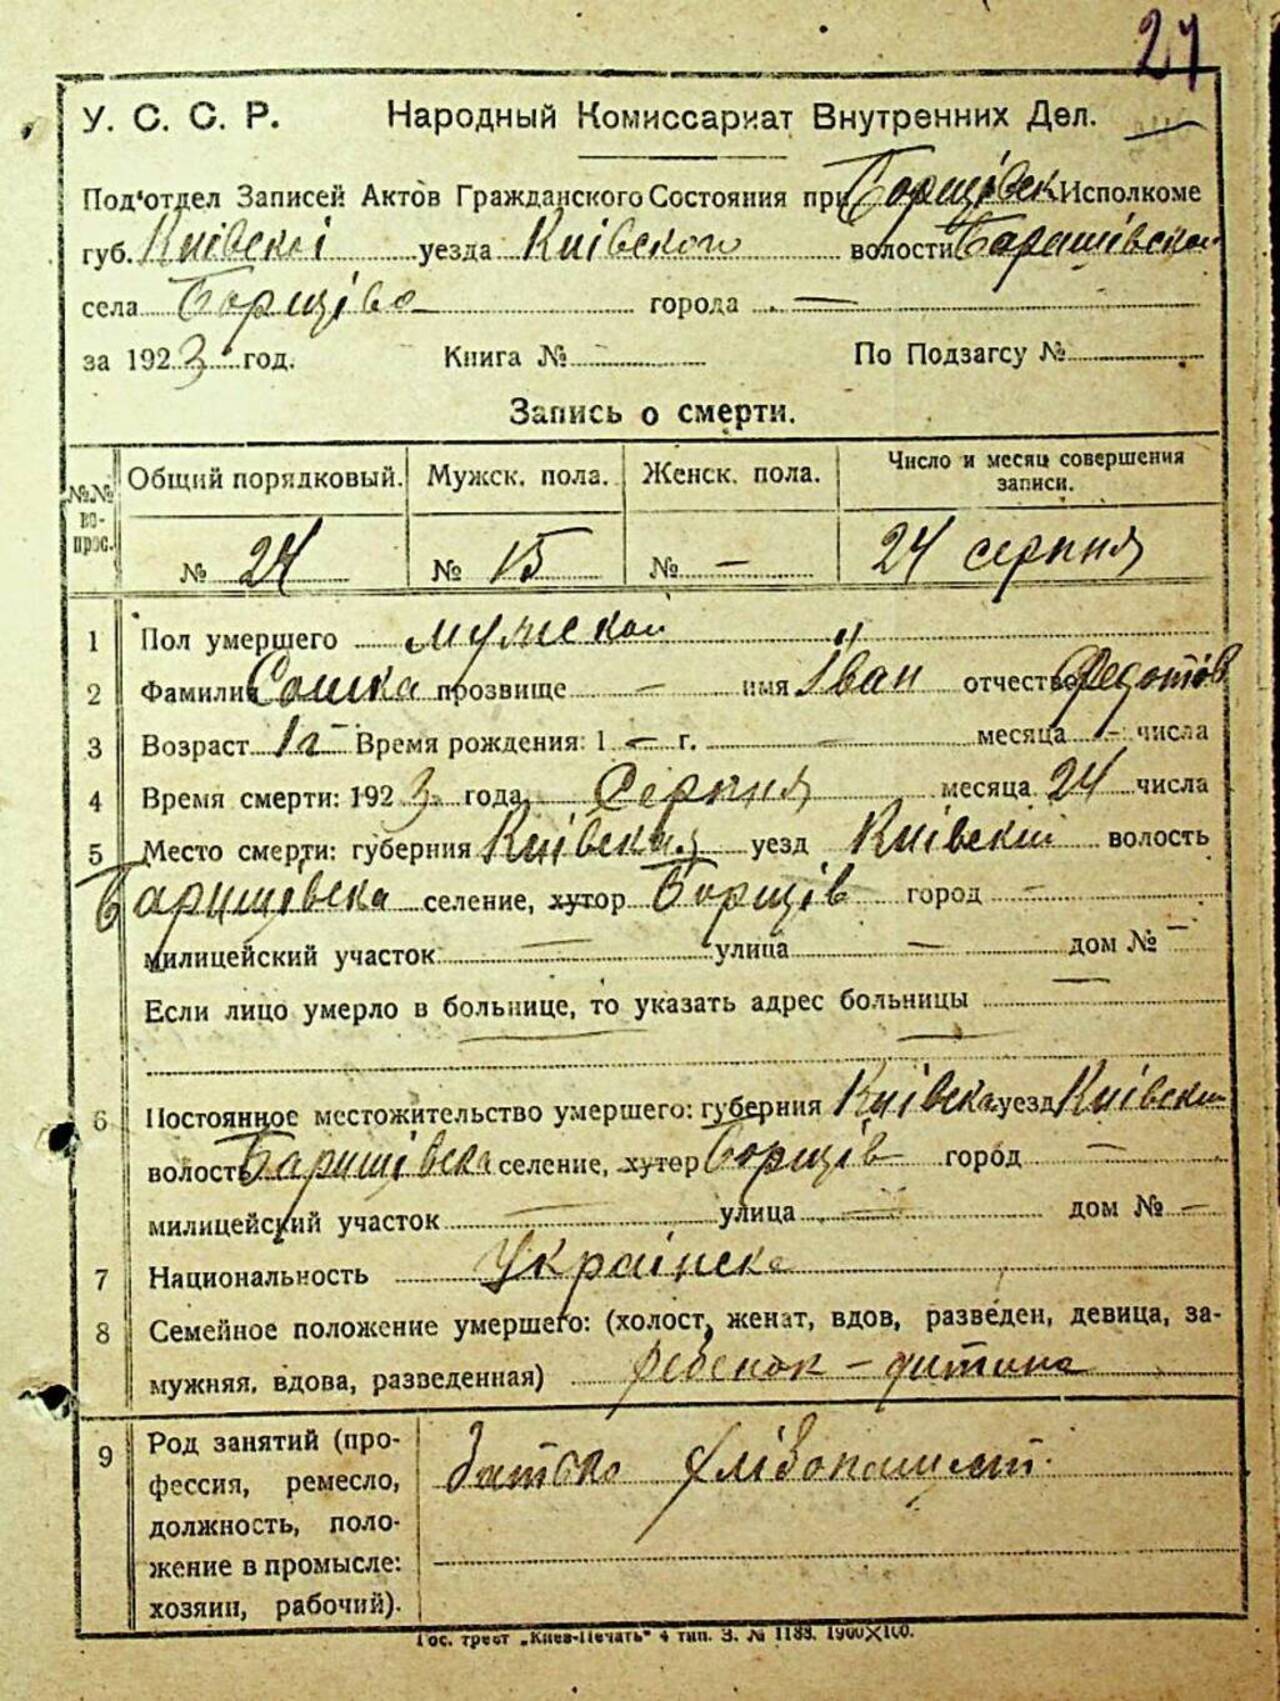 27
У. С. С. Р. Народный Комиссариат Внутренних Дел.
Под'отдел Записей Актов Гражданского Состояния при Борщівск Исполкоме
губ. Київскої уезда Київского волости Баришівской
села Борщіво города —
за 1923 год. Книга № По Подзагсу №
Запись о смерти.
№№ во-прос. Общий порядковый. Мужск. пола. Женск. пола. Число и месяц совершения записи.
№ 24 № 15 № — 24 серпня
1 Пол умершего мужской
2 Фамилия Сошка прозвище — имя Іван отчество Федотов
3 Возраст 1 г Время рождения: 1 — г. — месяца — числа
4 Время смерти: 1923 года Серпня месяца 24 числа
5 Место смерти: губерния Київска уезд Київский волость
Баришівска селение, хутор Борщів город —
милицейский участок — улица — дом № —
Если лицо умерло в больнице, то указать адрес больницы —
6 Постоянное местожительство умершего: губерния Київска уезд Київский
волость Баришівска селение, хутор Борщів город —
милицейский участок — улица — дом № —
7 Национальность Українска
8 Семейное положение умершего: (холост, женат, вдов, разведен, девица, за-
мужняя, вдова, разведенная) ребенок – дитина
9 Род занятий (про- Батько хлібопашест.
фессия, ремесло,
должность, поло-
жение в промысле:
хозяин, рабочий).
Гос. трест „Киев-Печать" 4 тип. З. № 1188. 1900×100.